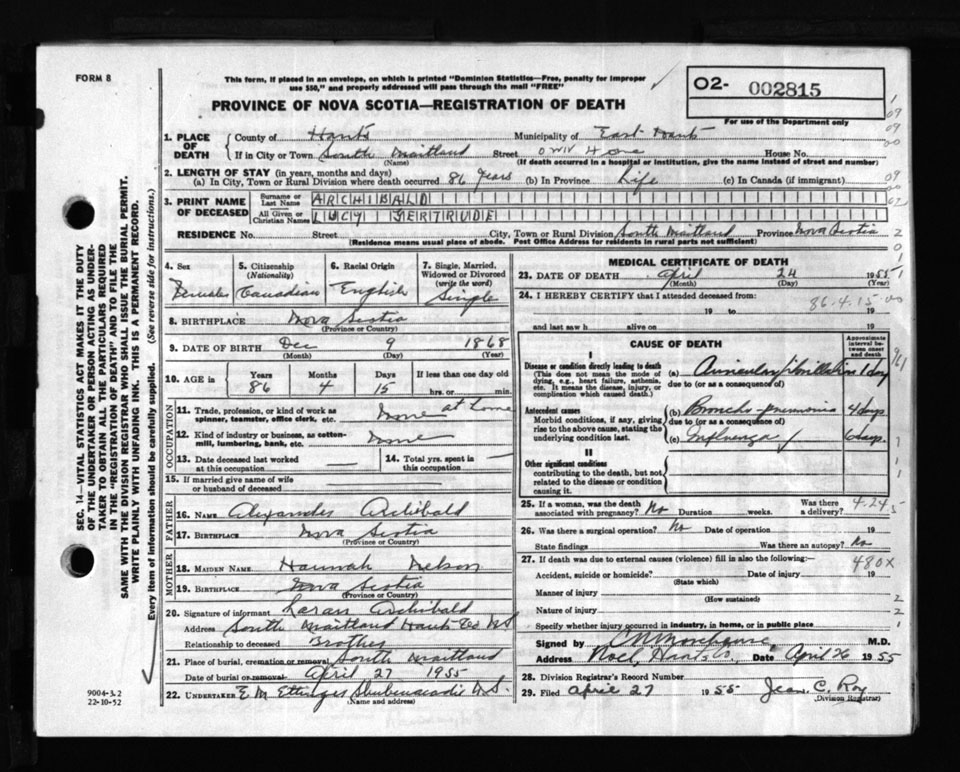 FORM 8
This form, if placed in an envelope, on which is printed "Dominion Statistics—Free, penalty for improper
use $50," and properly addressed will pass through the mail "FREE"
PROVINCE OF NOVA SCOTIA—REGISTRATION OF DEATH
O2- 002815
For use of the Department only
1. PLACE OF DEATH
County of Hants Municipality of East Hants
If in City or Town South Maitland Street own Home House No.
(Name) (If death occurred in a hospital or institution, give the name instead of street and number)
2. LENGTH OF STAY (in years, months and days)
(a) In City, Town or Rural Division where death occurred 86 Years (b) In Province Life (c) In Canada (if immigrant)
3. PRINT NAME OF DECEASED
Surname or Last Name ARCHIBALD
All Given or Christian Names LUCY GERTRUDE
RESIDENCE No. Street City, Town or Rural Division South Maitland Province Nova Scotia
(Residence means usual place of abode. Post Office Address for residents in rural parts not sufficient)
4. Sex
Female
5. Citizenship
(Nationality)
Canadian
6. Racial Origin
English
7. Single, Married,
Widowed or Divorced
(write the word)
Single
8. BIRTHPLACE Nova Scotia
(Province or Country)
9. DATE OF BIRTH Dec 9 1868
(Month) (Day) (Year)
10. AGE in Years Months Days If less than one day old
86 4 15 hrs. or min.
OCCUPATION
11. Trade, profession, or kind of work as
spinner, teamster, office clerk, etc. None at home
12. Kind of industry or business, as cotton-
mill, lumbering, bank, etc. None
13. Date deceased last worked
at this occupation —
14. Total yrs. spent in
this occupation —
15. If married give name of wife
or husband of deceased
FATHER
16. NAME Alexander Archibald
17. BIRTHPLACE Nova Scotia
(Province or Country)
MOTHER
18. MAIDEN NAME Hannah Nelson
19. BIRTHPLACE Nova Scotia
(Province or Country)
20. Signature of informant Archibald
Address South Maitland Hants Co NS
Relationship to deceased Brother
21. Place of burial, cremation or removal South Maitland
Date of burial or removal April 27 1955
22. UNDERTAKER E. M. Ettinger Shubenacadie N.S.
(Name and address)
MEDICAL CERTIFICATE OF DEATH
23. DATE OF DEATH April 24 1955
(Month) (Day) (Year)
24. I HEREBY CERTIFY that I attended deceased from:
86.4.15
19 to 19
and last saw h alive on 19
CAUSE OF DEATH
Approximate interval between onset and death
I
Disease or condition directly leading to death
(This does not mean the mode of
dying, e.g., heart failure, asthenia,
etc. It means the disease, injury, or
complication which caused death.)
(a) Auricular fibrillation 1 day
due to (or as a consequence of)
Antecedent causes
Morbid conditions, if any, giving
rise to the above cause, stating the
underlying condition last.
(b) Broncho-pneumonia 4 days
due to (or as a consequence of)
(c) Influenza 6 days
II
Other significant conditions
contributing to the death, but not
related to the disease or condition
causing it.
25. If a woman, was the death
associated with pregnancy? No Duration weeks. Was there
a delivery?
4.24.5
26. Was there a surgical operation? No Date of operation 19
State findings Was there an autopsy? No
27. If death was due to external causes (violence) fill in also the following:
480X
Accident, suicide or homicide? Date of injury 19
(State which)
Manner of injury
(How sustained)
Nature of injury
Specify whether injury occurred in industry, in home, or in public place
Signed by C M Morehouse M.D.
Address Noel, Hants Co., Date April 26 1955
28. Division Registrar's Record Number
29. Filed April 27 1955 Jean C. Roy
(Division Registrar)
SEC. 14—VITAL STATISTICS ACT MAKES IT THE DUTY
OF THE UNDERTAKER OR PERSON ACTING AS UNDER-
TAKER TO OBTAIN ALL THE PARTICULARS REQUIRED
IN THE "REGISTRATION OF DEATH" AND TO FILE THE
SAME WITH THE DIVISION REGISTRAR WHO SHALL ISSUE THE BURIAL PERMIT.
WRITE PLAINLY WITH UNFADING INK. THIS IS A PERMANENT RECORD.
Every item of information should be carefully supplied. (See reverse side for instructions.)
9004-3.2
22-10-52